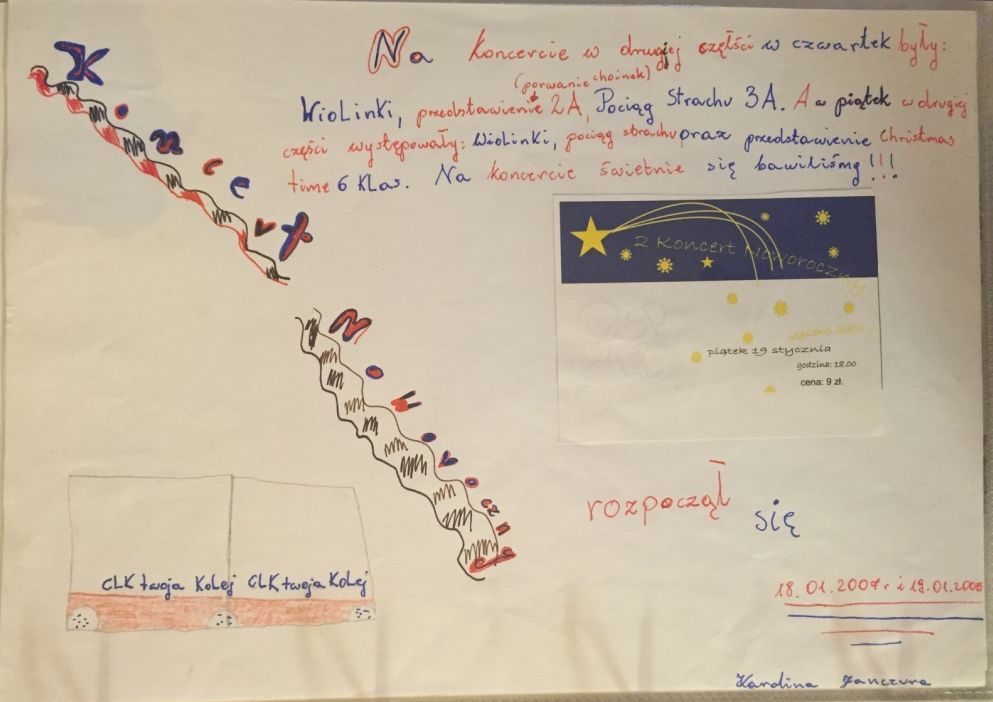 Koncert
Noworoczny
Na koncercie w drugiej części w czwartek były:
(porwanie choinek)
Wiolinki, przedstawienie 2A, Pociąg Strachu 3A. A w piątek w drugiej
części występowały: Wiolinki, pociąg strachu oraz przedstawienie Christmas
time 6 klas. Na koncercie świetnie się bawiliśmy!!!
2 Koncert Noworoczny
styczeń 2007
piątek 19 stycznia
godzina: 18.00
cena: 9 zł.
rozpoczął się
CLK twoja Kolej CLK twoja Kolej
18.01.2007r i 19.01.2007
Karolina